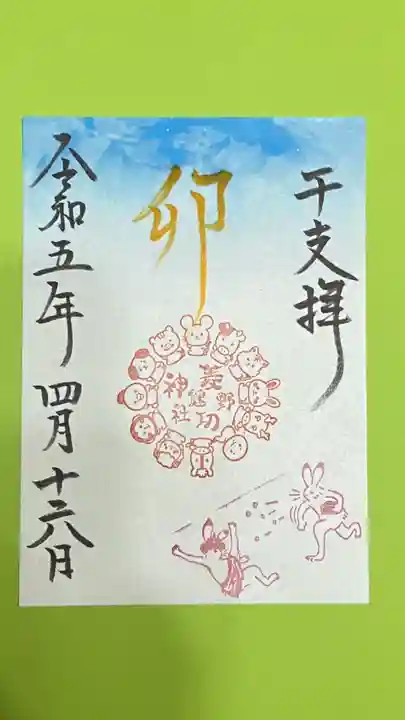 干支拝
卯
菱野
健功
神社
令和五年 四月十六日